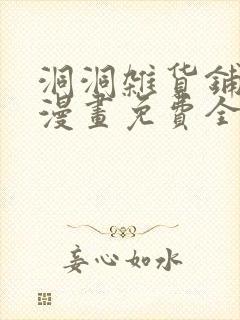 洞洞雜貨鋪
漫畫免費全
妄心如水